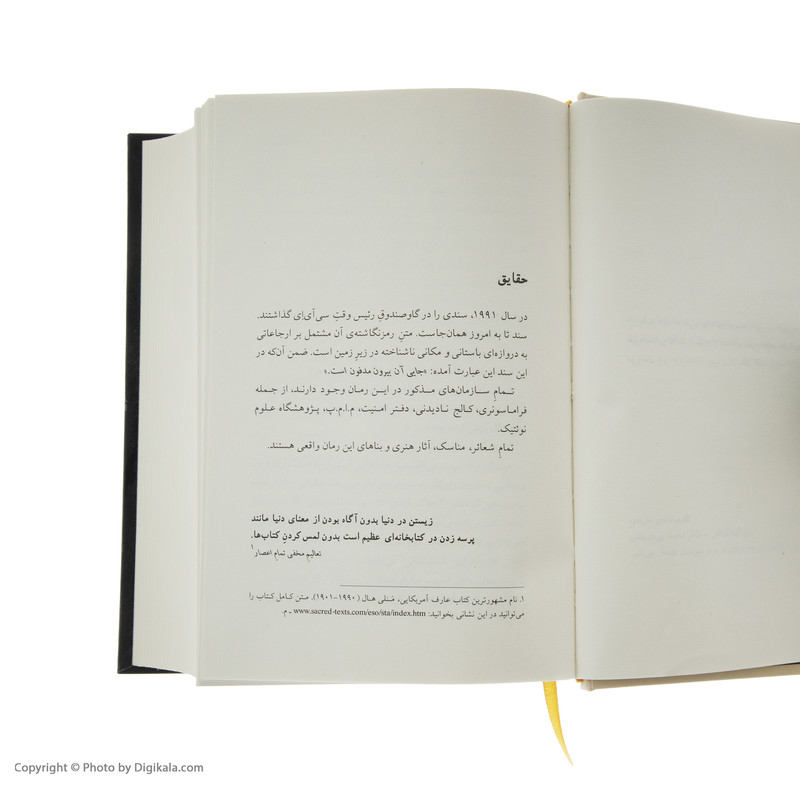 حقایق
در سال ۱۹۹۱، سندی را در گاوصندوقِ رئیس وقتِ سی‌آی‌اِی گذاشتند.
سند تا به امروز همان‌جاست. متنِ رمزنگاشته‌ی آن مشتمل بر ارجاعاتی
به دروازه‌ای باستانی و مکانی ناشناخته در زیرِ زمین است. ضمن آن‌که در
این سند این عبارت آمده: «جایی آن بیرون مدفون است.»
تـمـامِ سـازمان‌های مـذکور در ایـن رمان وجود دارنـد، از جـمله
فراماسونری، کالج نادیدنی، دفتـر امنیت، م.ا.م.پ، پژوهشگاه علـوم
نوئتیک.
تمامِ شعائر، مناسک، آثار هنری و بناهای این رمان واقعی هستند.
زیستن در دنیا بدون آگاه بودن از معنای دنیا مانند
پرسه زدن در کتابخانه‌ای عظیم است بدون لمس کردنِ کتاب‌ها.
تعالیمِ مخفی تمام اعصار۱
۱. نام مشهورترین کتاب عارف آمریکایی، مَنلی هـال (۱۹۹۰-۱۹۰۱). متـن کامـل کتـاب را
می‌توانید در این نشانی بخوانید: www.sacred-texts.com/eso/sta/index.htm ـ م.
Copyright © Photo by Digikala.com